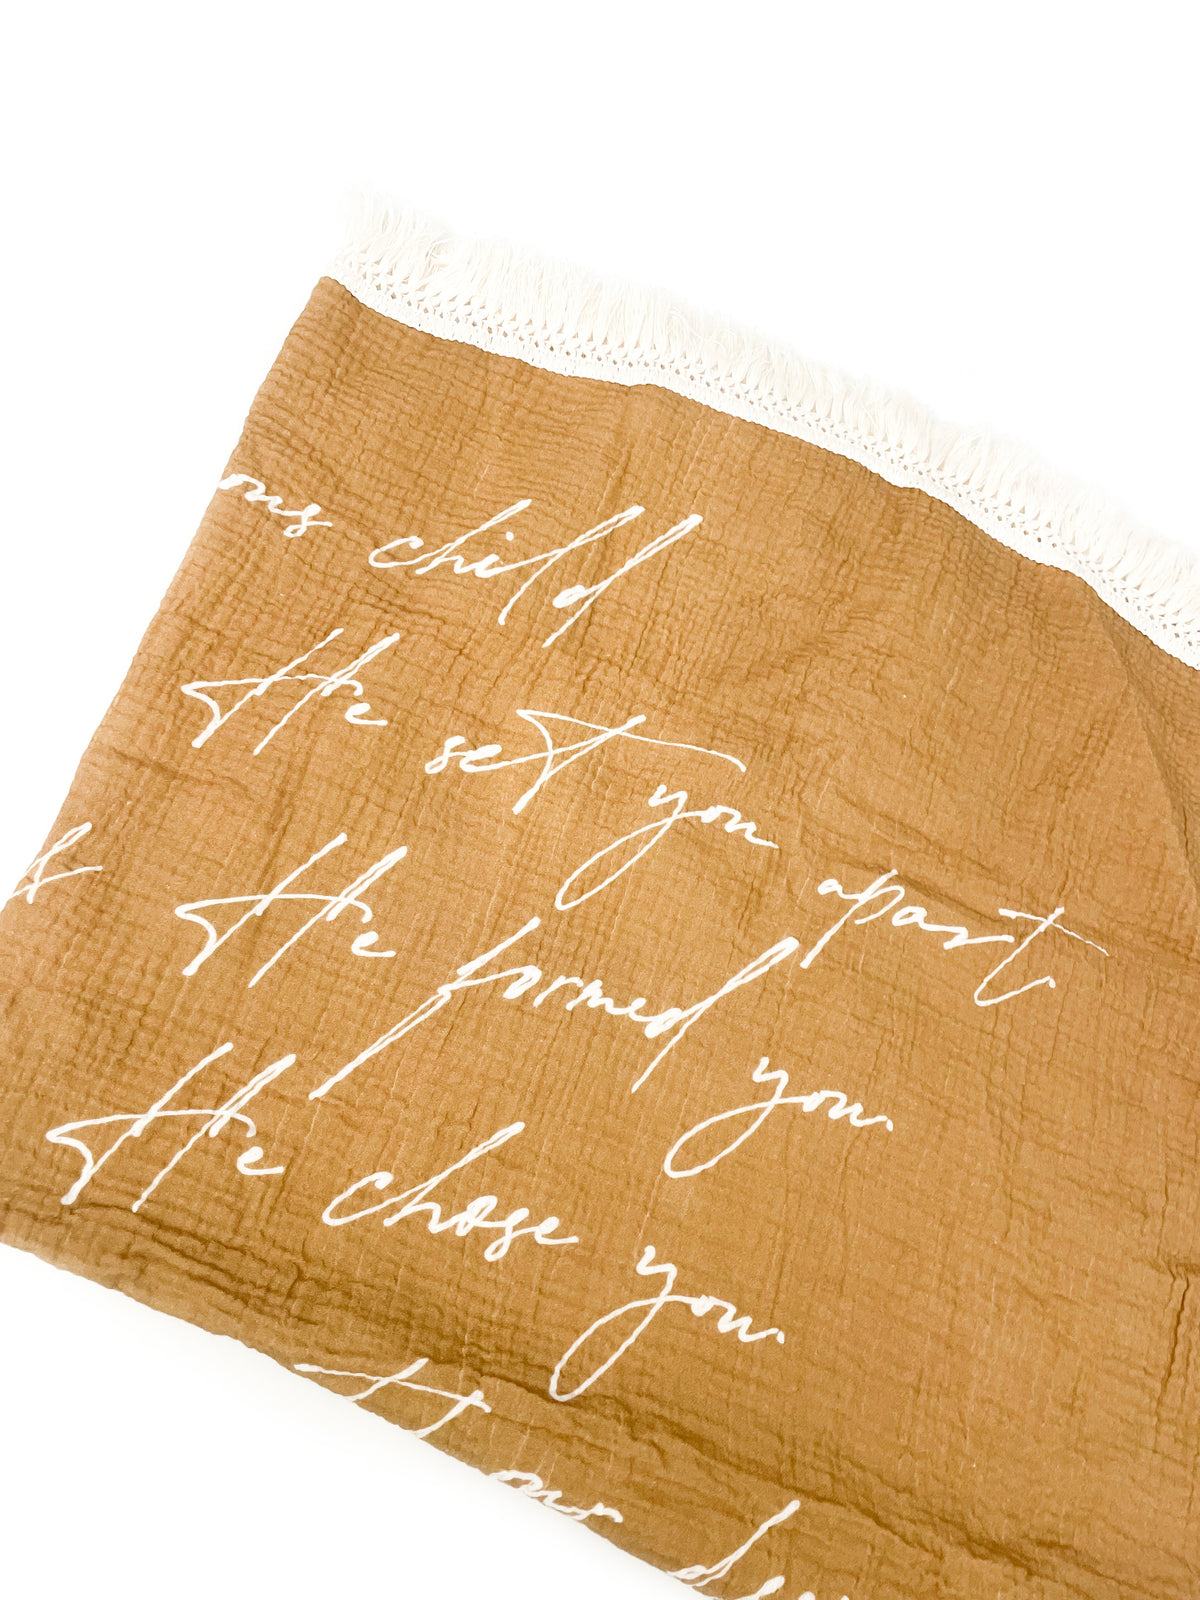 child
He set you apart.
He formed you.
He chose you.